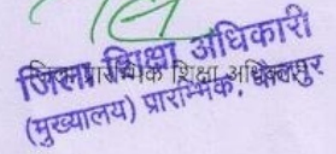 जिला शिक्षा अधिकारी
जिला प्रारम्भिक शिक्षा अधिकारी
(मुख्यालय) प्रारम्भिक, धौलपुर